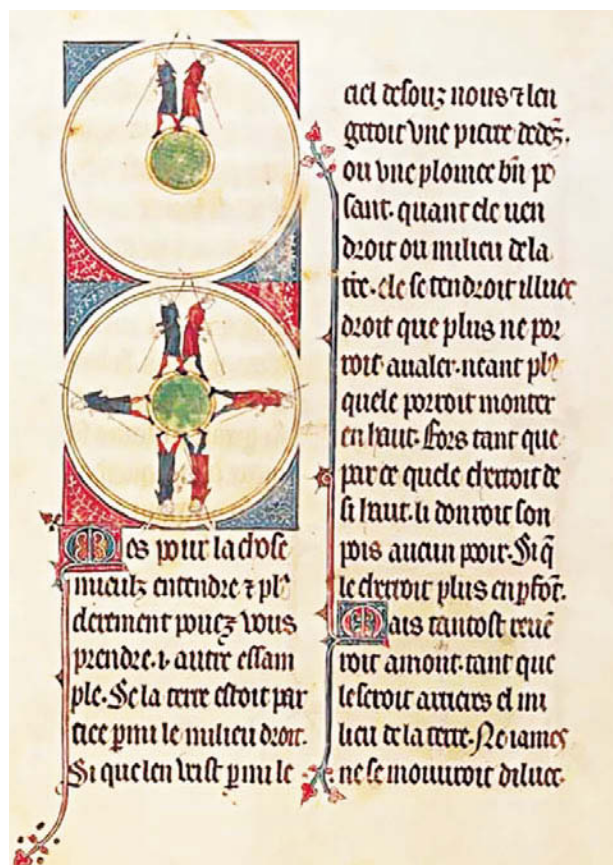 Mes pour la chose
mieulz entendre ⁊ pl9
clerement pouez vous
prendre .i. autre essam
ple. Se la terre estoit par
tiee p̲mi le milieu droit.
Si que len veist p̲mi le
ciel desouz nous ⁊ len
getoit vne pierre dedēz.
ou vne plomee bn̄ pe
sant. quant ele uen
droit ou milieu de la
tr̄e. ele se tendroit illuec
droit que plus ne por
roit aualer. neant pl9
quele porroit monter
en haut. Fors tant que
par ce quele cherroit de
si haut. li donroit son
pois aucun pooir. Si q̄
le cherroit plus en p̲fōt.
Mais tantost reuē
roit amont. tant que
le seroit arriers el mi
lieu de la terre. Ne iames
ne se mouuroit diluec.